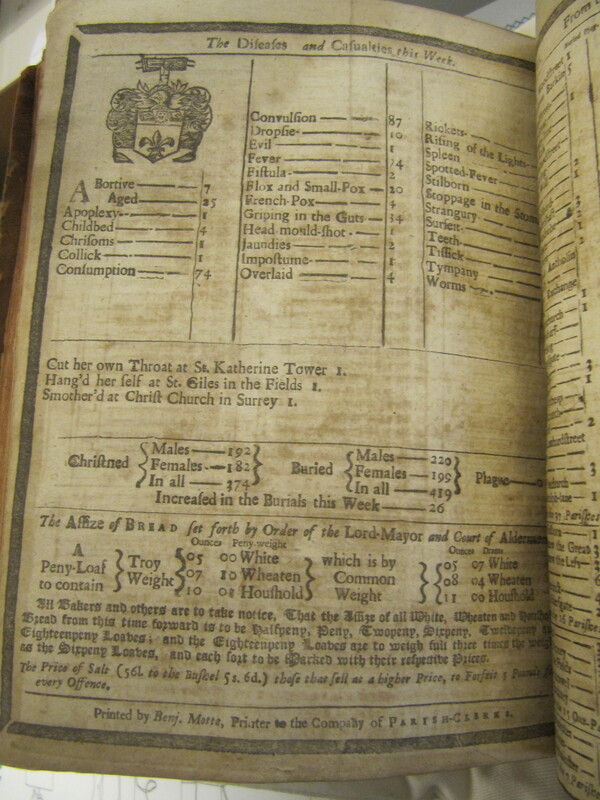 The Diseases and Casualties this Week.
ABortive 7
Aged 25
Apoplexy 1
Childbed 4
Chrisoms 1
Collick 1
Consumption 74
Convulsion 87
Dropsie 10
Evil 1
Fever 74
Fistula 2
Flox and Small-Pox 20
French-Pox 4
Griping in the Guts 34
Head-mould-shot 1
Jaundies 2
Impostume 1
Overlaid 4
Rickets
Rising of the Lights
Spleen
Spotted-Fever
Stilborn
Stoppage in the
Strangury
Surfeit
Teeth
Tissick
Tympany
Worms
Cut her own Throat at St. Katherine Tower 1.
Hang'd her self at St. Giles in the Fields 1.
Smother'd at Christ Church in Surrey 1.
Christned { Males 192 Females 182 In all 374 }
Buried { Males 220 Females 199 In all 419 }
Plague
Increased in the Burials this Week 26
The Assize of BREAD set forth by Order of the Lord-Mayor and Court of
Ounces Peny-weight
Ounces Drams
A Peny-Loaf to contain } Troy Weight { 05 00 White 07 10 Wheaten 10 08 Houshold } which is by Common Weight { 05 07 White 08 04 Wheaten 11 00 Houshold
All Bakers and others are to take notice, That the Assize of all White, Wheaten and
Bread from this time forward is to be Halfpeny, Peny, Twopeny, Sixpeny, Twelvepeny
Eighteenpeny Loaves; and the Eighteenpeny Loaves are to weigh full three times the
as the Sixpeny Loaves, and each sort to be Marked with their respective Prices.
The Price of Salt (56l. to the Bushel 5s. 6d.) those that sell at a higher Price, to Forfeit 5
every Offence,
Printed by Benj. Motte, Printer to the Company of PARISH-CLERKS.
From